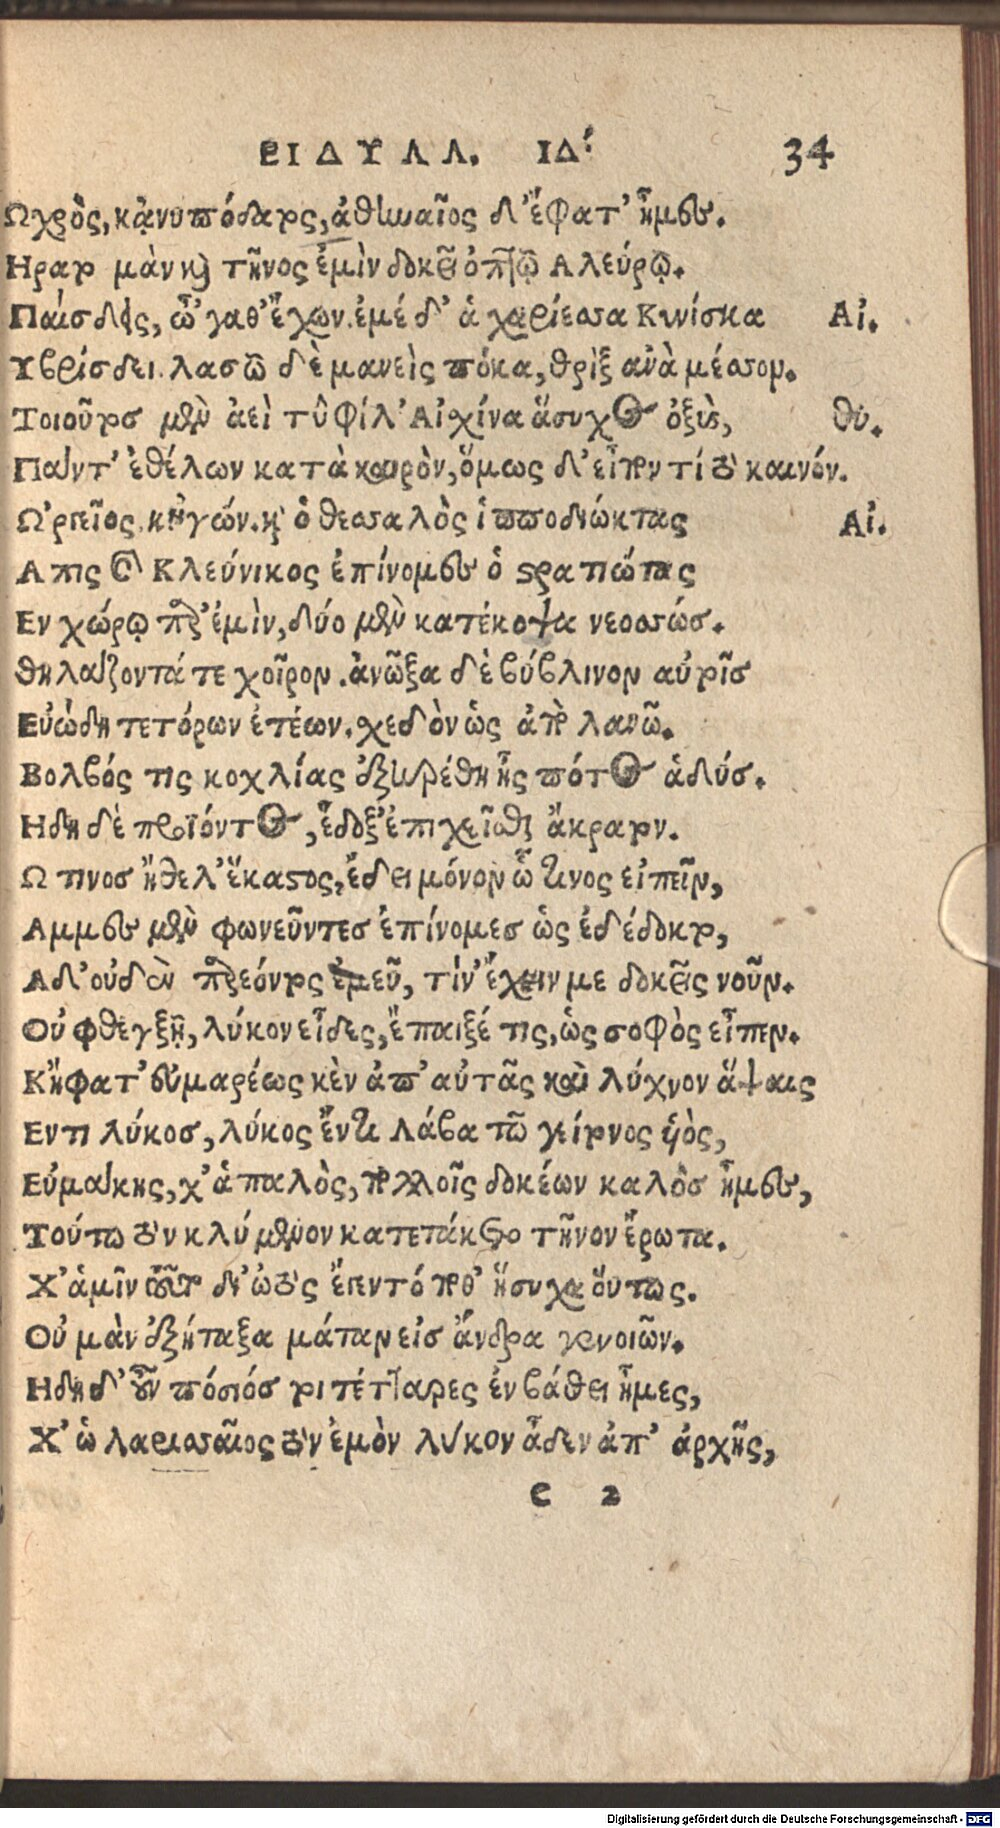 ΕΙΔΥΛΛ. ΙΔ΄. 34
Ὠχρὸς, κᾀνυπόδατος, ἀθηναῖος δ' ἔφατ' ἦμεν.
Ηρατο μὰν καὶ τῆνος ἐμὶν δοκεῖ ὀπτῶ Αλεύρω.
Παίσδεις, ὦ 'γαθ' ἔχων. ἐμέ δ' ἁ χαρίεσσα Κυνίσκα Αἰ.
Υβρίσδει. λασῶ δὲ μανεὶς πόκα, θρὶξ ανὰ μέσσον.
Τοιοῦτος μὲν ἀεὶ τὺ φίλ' Αἰχίνα ἅσυχος ὀξὺς, θύ.
Παντ' ἐθέλων κατὰ καιρὸν, ὅμως δ' εἶπον τί τὸ καινόν.
Ω'ργεῖος. κἠγών. καὶ ὁ θεσσαλὸς ἱπποδιώκτας Αἰ.
Απις καὶ Κλεύνικος ἐπίνομεν ὁ στρατιώτας
Εν χώρῳ παρ' ἐμὶν, δύο μὲν κατέκοψα νεοσσώς.
Θηλάζοντά τε χοῖρον. ἀνῶξα δὲ βύβλινον αὐτοῖς
Εὐώδη τετόρων ἐτέων. χεδὸν ὡς ἀπὸ λανῶ.
Βολβός τις κοχλίας ἐξῃρέθη ἦς πότος ἁδύς.
Ηδη δὲ προϊόντος, ἔδοξ' ἐπιχεῖσθαι ἄκρατον.
Ω τινος ἤθελ' ἕκαστος, ἔδει μόνον ὧ τινος εἰπεῖν,
Αμμες μὲν φωνεῦντες ἐπίνομες ὡς ἐδέδοκτο,
Αδ' οὐδὲν παρεόντος ἐμεῦ, τίν' ἔχειν με δοκεῖς νοῦν.
Οὐ φθεγξῇ, λύκον εἶδες, ἔπαιξέ τις, ὡς σοφὸς εἶπεν.
Κἤφατ' εὐμαρέως κὲν ἀπ' αὐτᾶς καὶ λύχνον ἅψαις
Εντι λύκος, λύκος ἔντι Λάβα τῶ γείτονος ὑιὸς,
Εὐμάκης, χ' ἁπαλὸς, πολλοῖς δοκέων καλὸς ἦμεν,
Τούτω τὸν κλύμενον κατετάκετο τῆνον ἔρωτα.
Χ' ἁμῖν τοῦτο δι' ὠτὸς ἔγεντό ποθ' ἥσυχα οὕτως.
Οὐ μὰν ἐξήταξα μάταν εἰς ἄνδρα γενοιῶν.
Ηδη δ' ὦν πόσιός τοι τέτταρες ἐν βάθει ἦμες,
Χ' ὡ λαρισσαῖος τὸν ἐμὸν λύκον ᾆδεν ἀπ' ἀρχῆς,
e 2
Digitalisierung gefördert durch die Deutsche Forschungsgemeinschaft - DFG